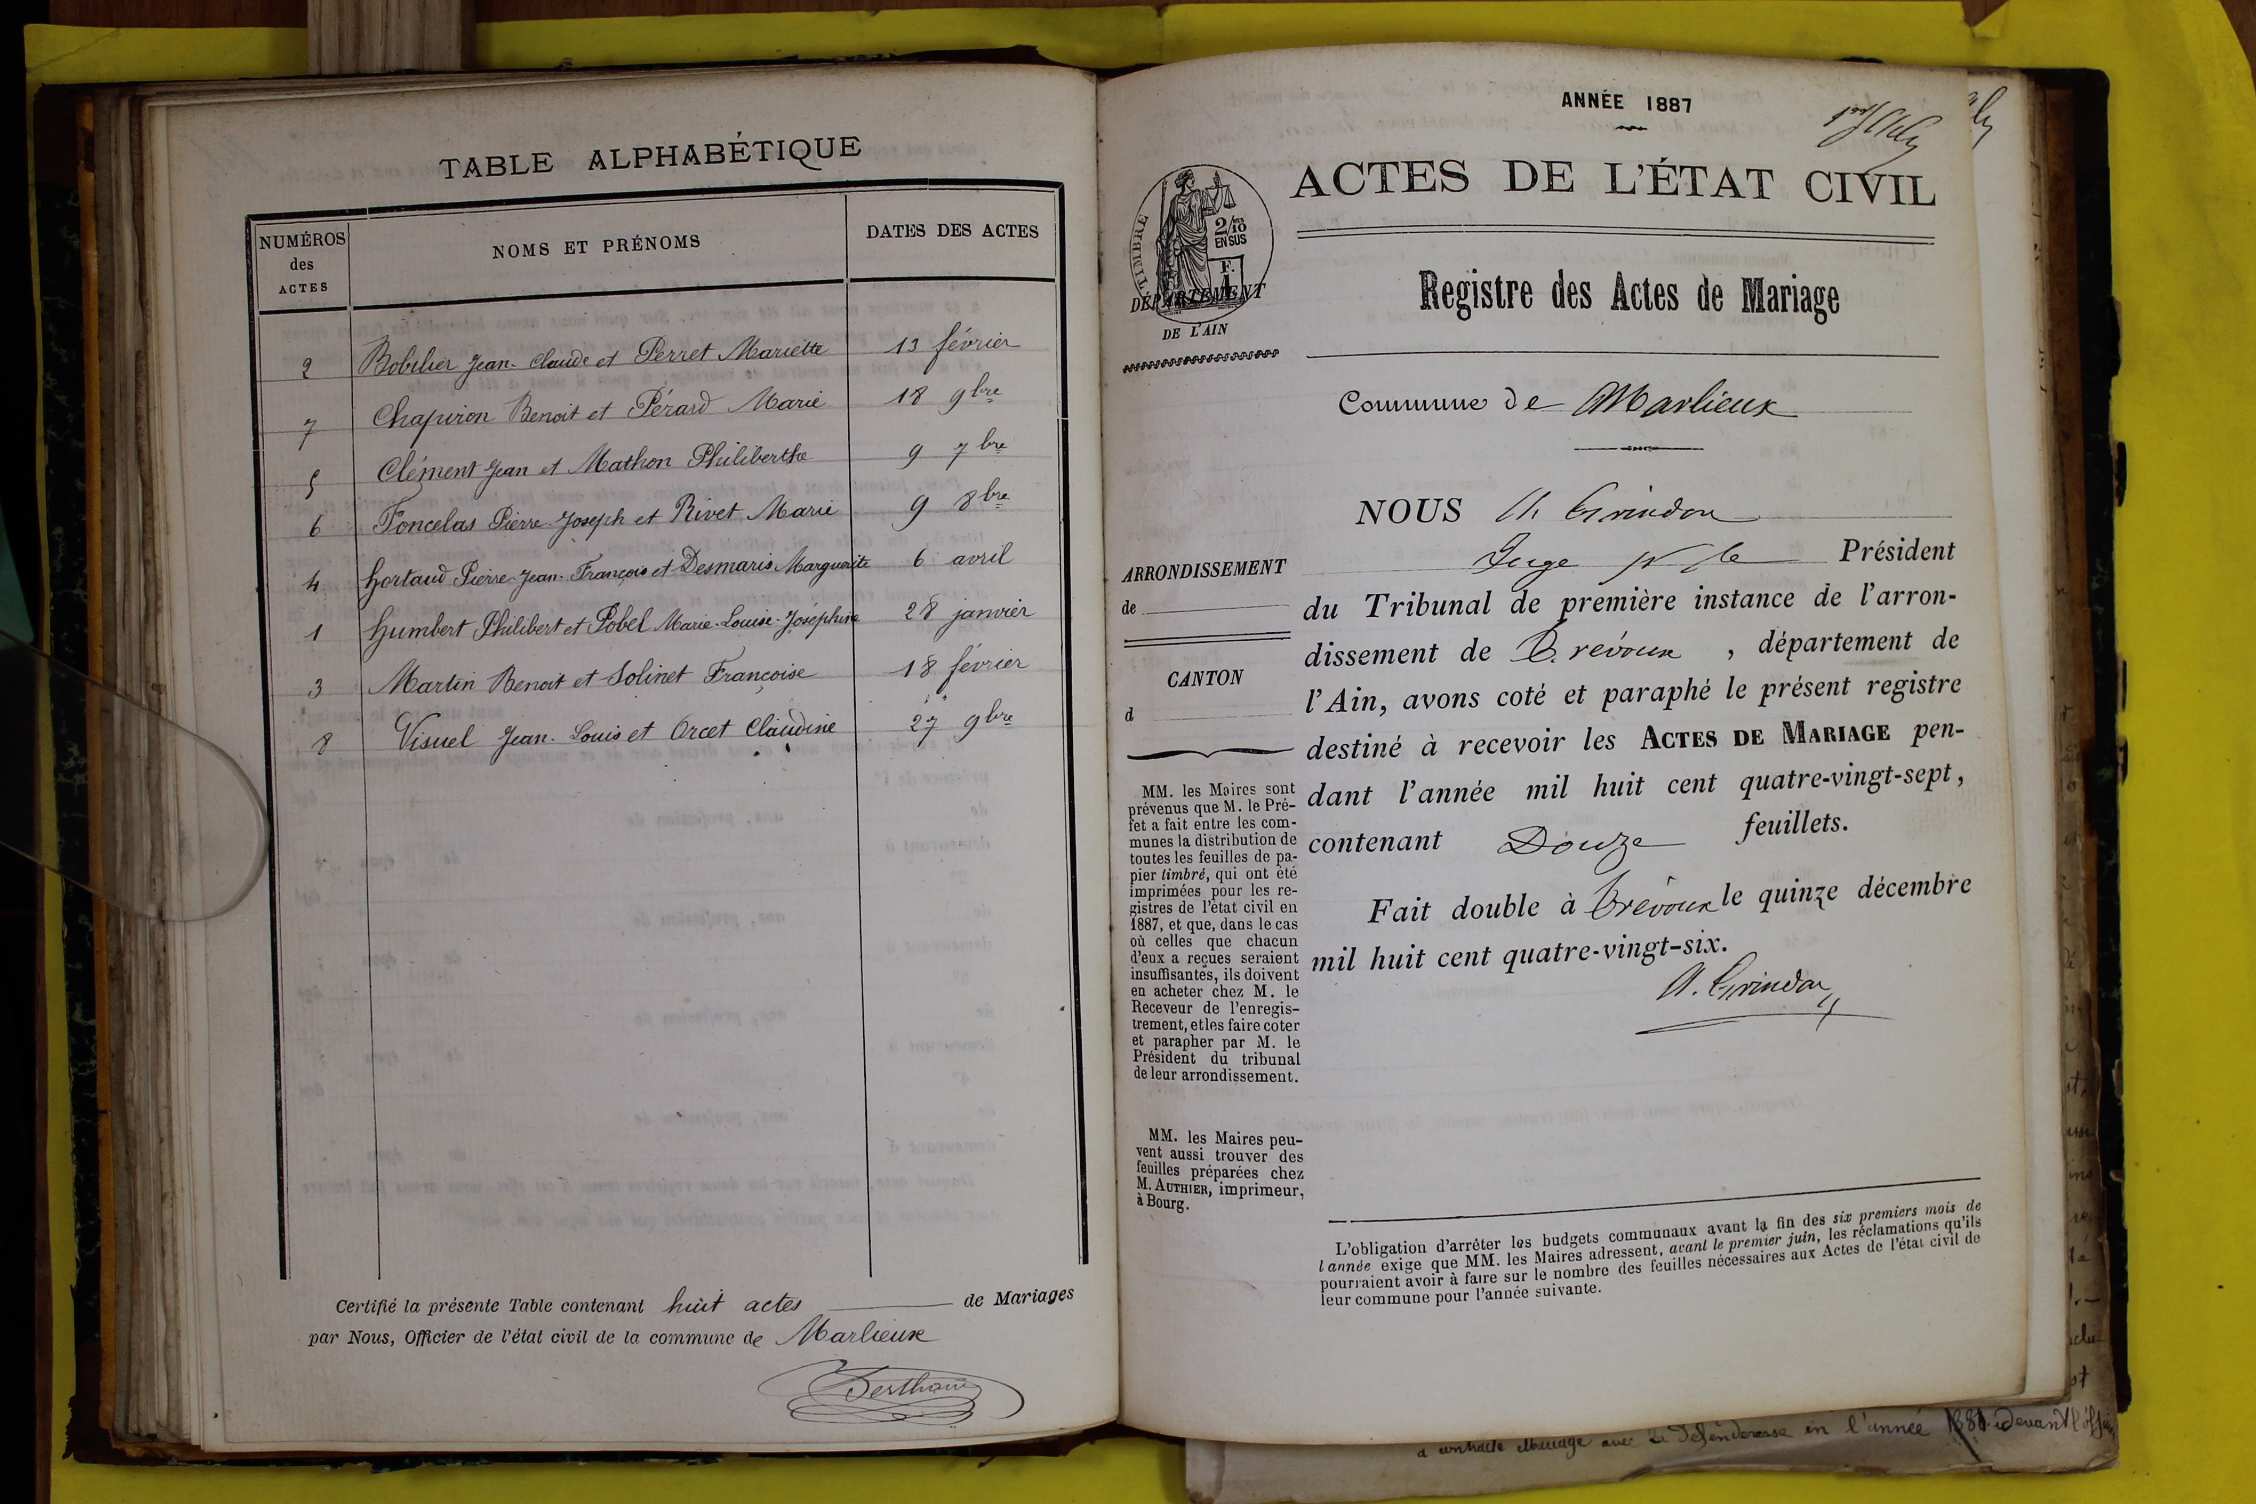 TABLE ALPHABÉTIQUE
NUMÉROS
des
ACTES
NOMS ET PRÉNOMS
DATES DES ACTES
2 Bobilier Jean-Claude et Perret Mariette 13 février
7 Chapiron Benoit et Pérard Marie 18 9bre
5 Clément Jean et Mathon Philiberthe 9 7bre
6 Foncelas Pierre-Joseph et Rivet Marie 9 8bre
4 Hortaud Pierre-Jean-François et Desmaris Marguerite 6 avril
1 Humbert Philibert et Pobel Marie-Louise-Joséphine 28 janvier
3 Martin Benoit et Solinet Françoise 18 février
8 Visuel Jean-Louis et Orcet Claudine 27 9bre
Certifié la présente Table contenant huit actes de Mariages
par Nous, Officier de l'état civil de la commune de Marlieux
ANNÉE 1887
ACTES DE L'ÉTAT CIVIL
TIMBRE
2/10
EN SUS
F.
1
DÉPARTEMENT
DE L'AIN
Registre des Actes de Mariage
Commune de Marlieux
NOUS Grindon
Juge Président
du Tribunal de première instance de l'arron-
dissement de Trévoux, département de
l'Ain, avons coté et paraphé le présent registre
destiné à recevoir les ACTES DE MARIAGE pen-
dant l'année mil huit cent quatre-vingt-sept,
contenant Douze feuillets.
Fait double à Trévoux le quinze décembre
mil huit cent quatre-vingt-six.
A. Grindon
ARRONDISSEMENT
de
CANTON
d
MM. les Maires sont
prévenus que M. le Pré-
fet a fait entre les com-
munes la distribution de
toutes les feuilles de pa-
pier timbré, qui ont été
imprimées pour les re-
gistres de l'état civil en
1887, et que, dans le cas
où celles que chacun
d'eux a reçues seraient
insuffisantes, ils doivent
en acheter chez M. le
Receveur de l'enregis-
trement, et les faire coter
et parapher par M. le
Président du tribunal
de leur arrondissement.
MM. les Maires peu-
vent aussi trouver des
feuilles préparées chez
M. AUTHIER, imprimeur,
à Bourg.
L'obligation d'arrêter les budgets communaux avant la fin des six premiers mois de
l'année exige que MM. les Maires adressent, avant le premier juin, les réclamations qu'ils
pourraient avoir à faire sur le nombre des feuilles nécessaires aux Actes de l'état civil de
leur commune pour l'année suivante.
a contracté mariage avec la défenderesse en l'année devant